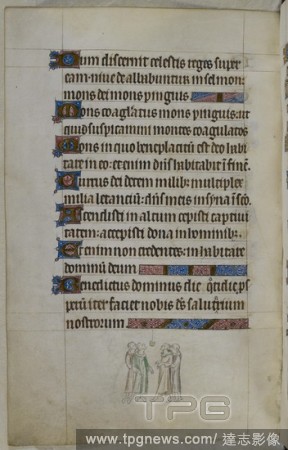 Dum discernit celestis reges super
eam niue de albabuntur in selmon:
mons dei mons pinguis
Mons coagulatus mons pinguis: ut
quid suspicamini montes coagulatos
Mons in quo beneplacitum est deo habi
tare in eo: etenim dns habitabit i finem.
Currus dei decem milib; multiplex
milia letancium: dns in eis in syna i sco.
Ascendisti in altum cepisti captiui
tatem: accepisti dona in hominib;
Etenim non credentes: inhabitare
dominum deum
Benedictus dominus die
iter faciet nobis ds
nostrorum
TPG
www.tpgnews.com / 達志影像